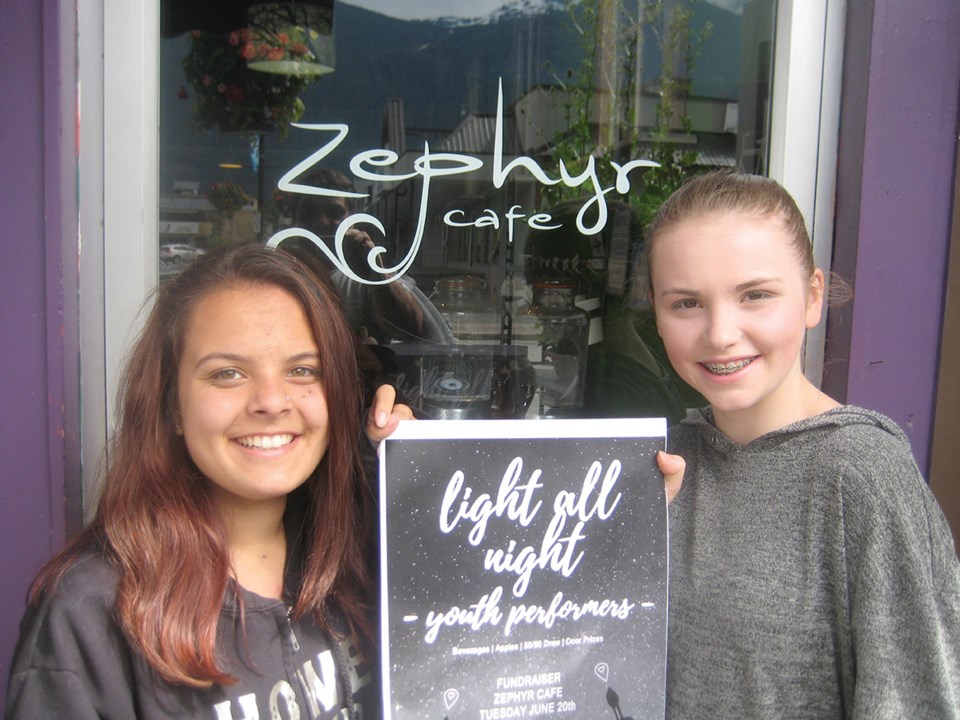 Zephyr
cafe
light all
night
- youth performers -
Beverages | Appies | 50/50 Draw | Door Prizes
FUNDRAISER
ZEPHYR CAFE
TUESDAY JUNE 20th
HOWE